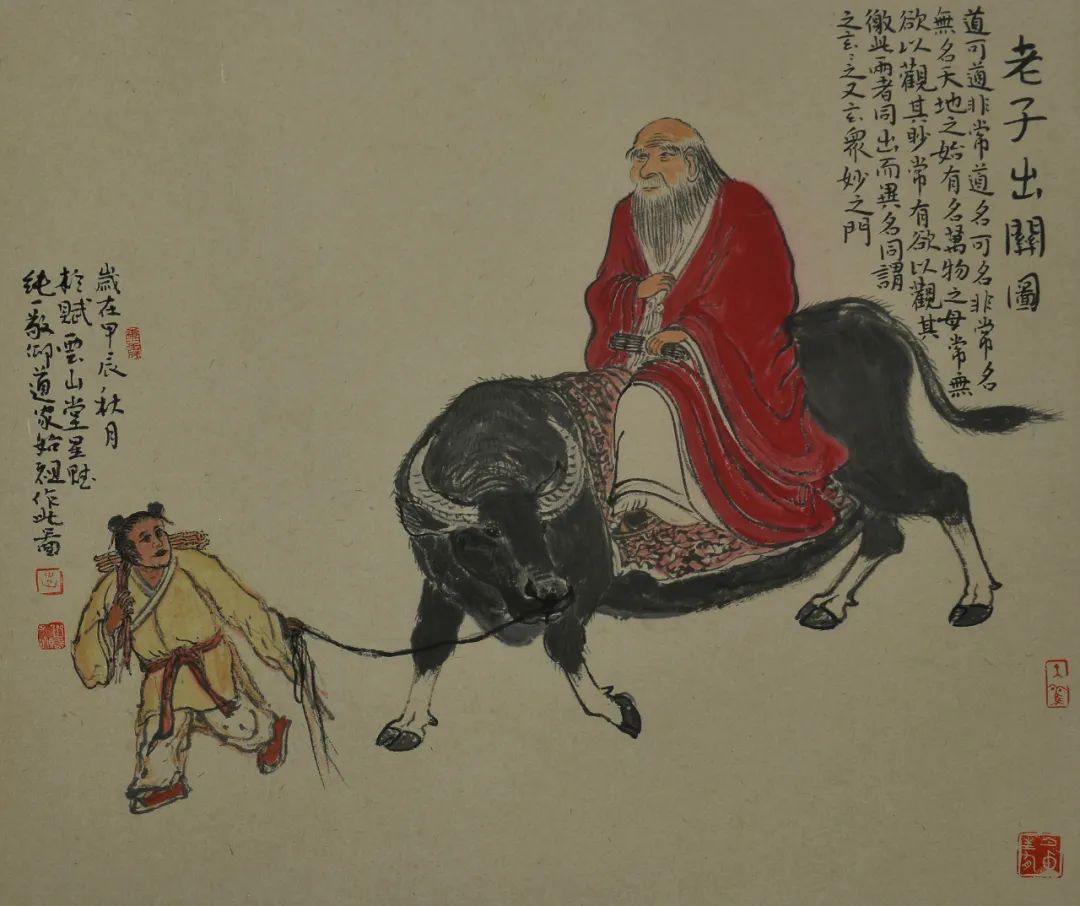 老子出關圖
道可道非常道名可名非常名
無名天地之始有名萬物之母常無
欲以觀其眇常有欲以觀其
徼此兩者同出而異名同謂
之玄〻之又玄眾妙之門
歲在甲辰秋月
於賦雲山堂星
純一敬仰道家始祖作此圖